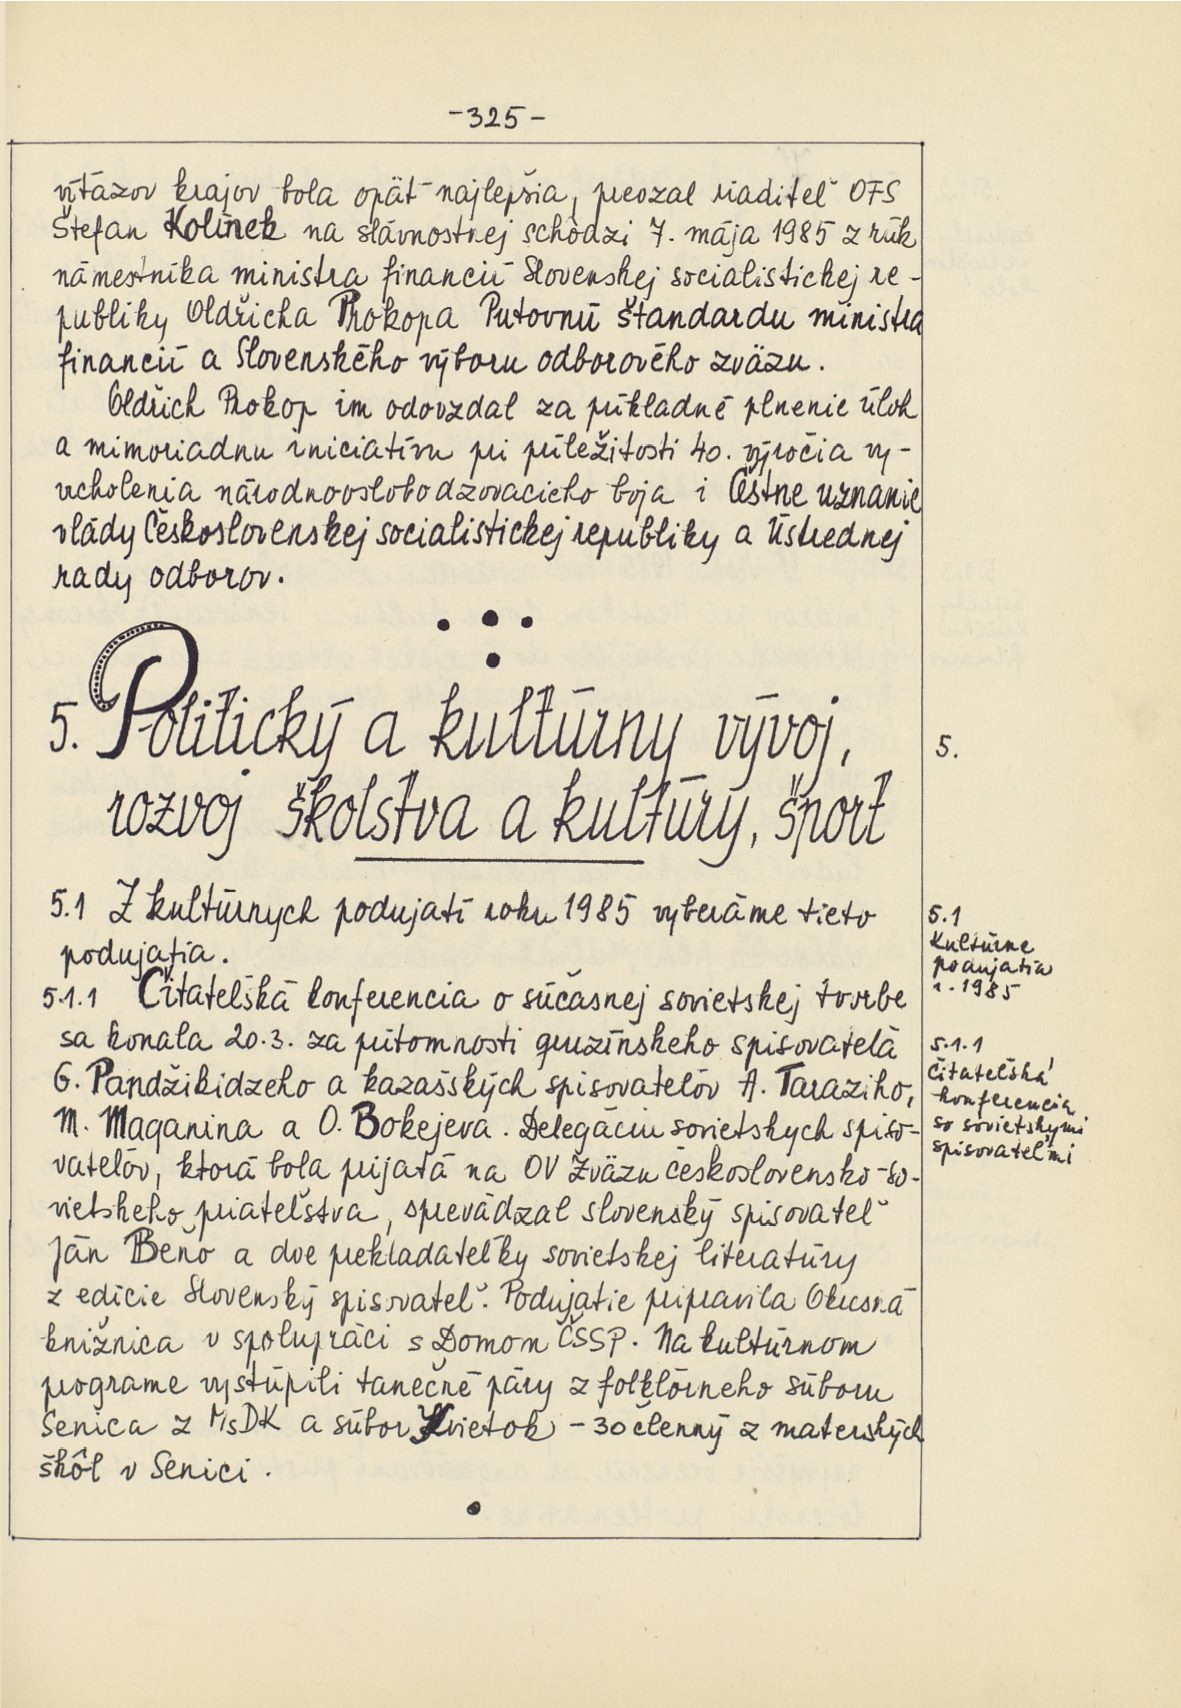 -325-
víťazov krajov bola opäť najlepšia, prevzal riaditeľ OFS
Štefan Kolínek na slávnostnej schôdzi 7. mája 1985 z rúk
námestníka ministra financií Slovenskej socialistickej re-
publiky Oldřicha Prokopa Putovnú štandardu ministra
financií a Slovenského výboru odborového zväzu.
Oldřich Prokop im odovzdal za príkladné plnenie úloh
a mimoriadnu iniciatívu pri príležitosti 40. výročia vy-
vrcholenia národnooslobodzovacieho boja i Čestne uznanie
vlády Československej socialistickej republiky a Ústrednej
rady odborov.
5. Politický a kultúrny vývoj,
rozvoj školstva a kultúry, šport
5.
5.1 Z kultúrnych podujatí roku 1985 vyberáme tieto
podujatia.
5.1
Kultúrne
podujatia
r. 1985
5.1.1 Čitateľská konferencia o súčasnej sovietskej tvorbe
sa konala 20.3. za prítomnosti gruzínskeho spisovateľa
G. Pandžikidzeho a kazašských spisovateľov A. Taraziho,
M. Maganina a O. Bokejeva. Delegáciu sovietskych spiso-
vateľov, ktorá bola prijatá na OV Zväzu československo-so-
vietskeho priateľstva, sprevádzal slovenský spisovateľ
Ján Beňo a dve prekladateľky sovietskej literatúry
z edície Slovenský spisovateľ. Podujatie pripravila Okresná
knižnica v spolupráci s Domom ČSSP. Na kultúrnom
programe vystúpili tanečné páry z folklórneho súboru
Senica z MsDK a súbor Kvietok - 30 členný z materských
škôl v Senici.
5.1.1
Čitateľská
konferencia
so sovietskymi
spisovateľmi